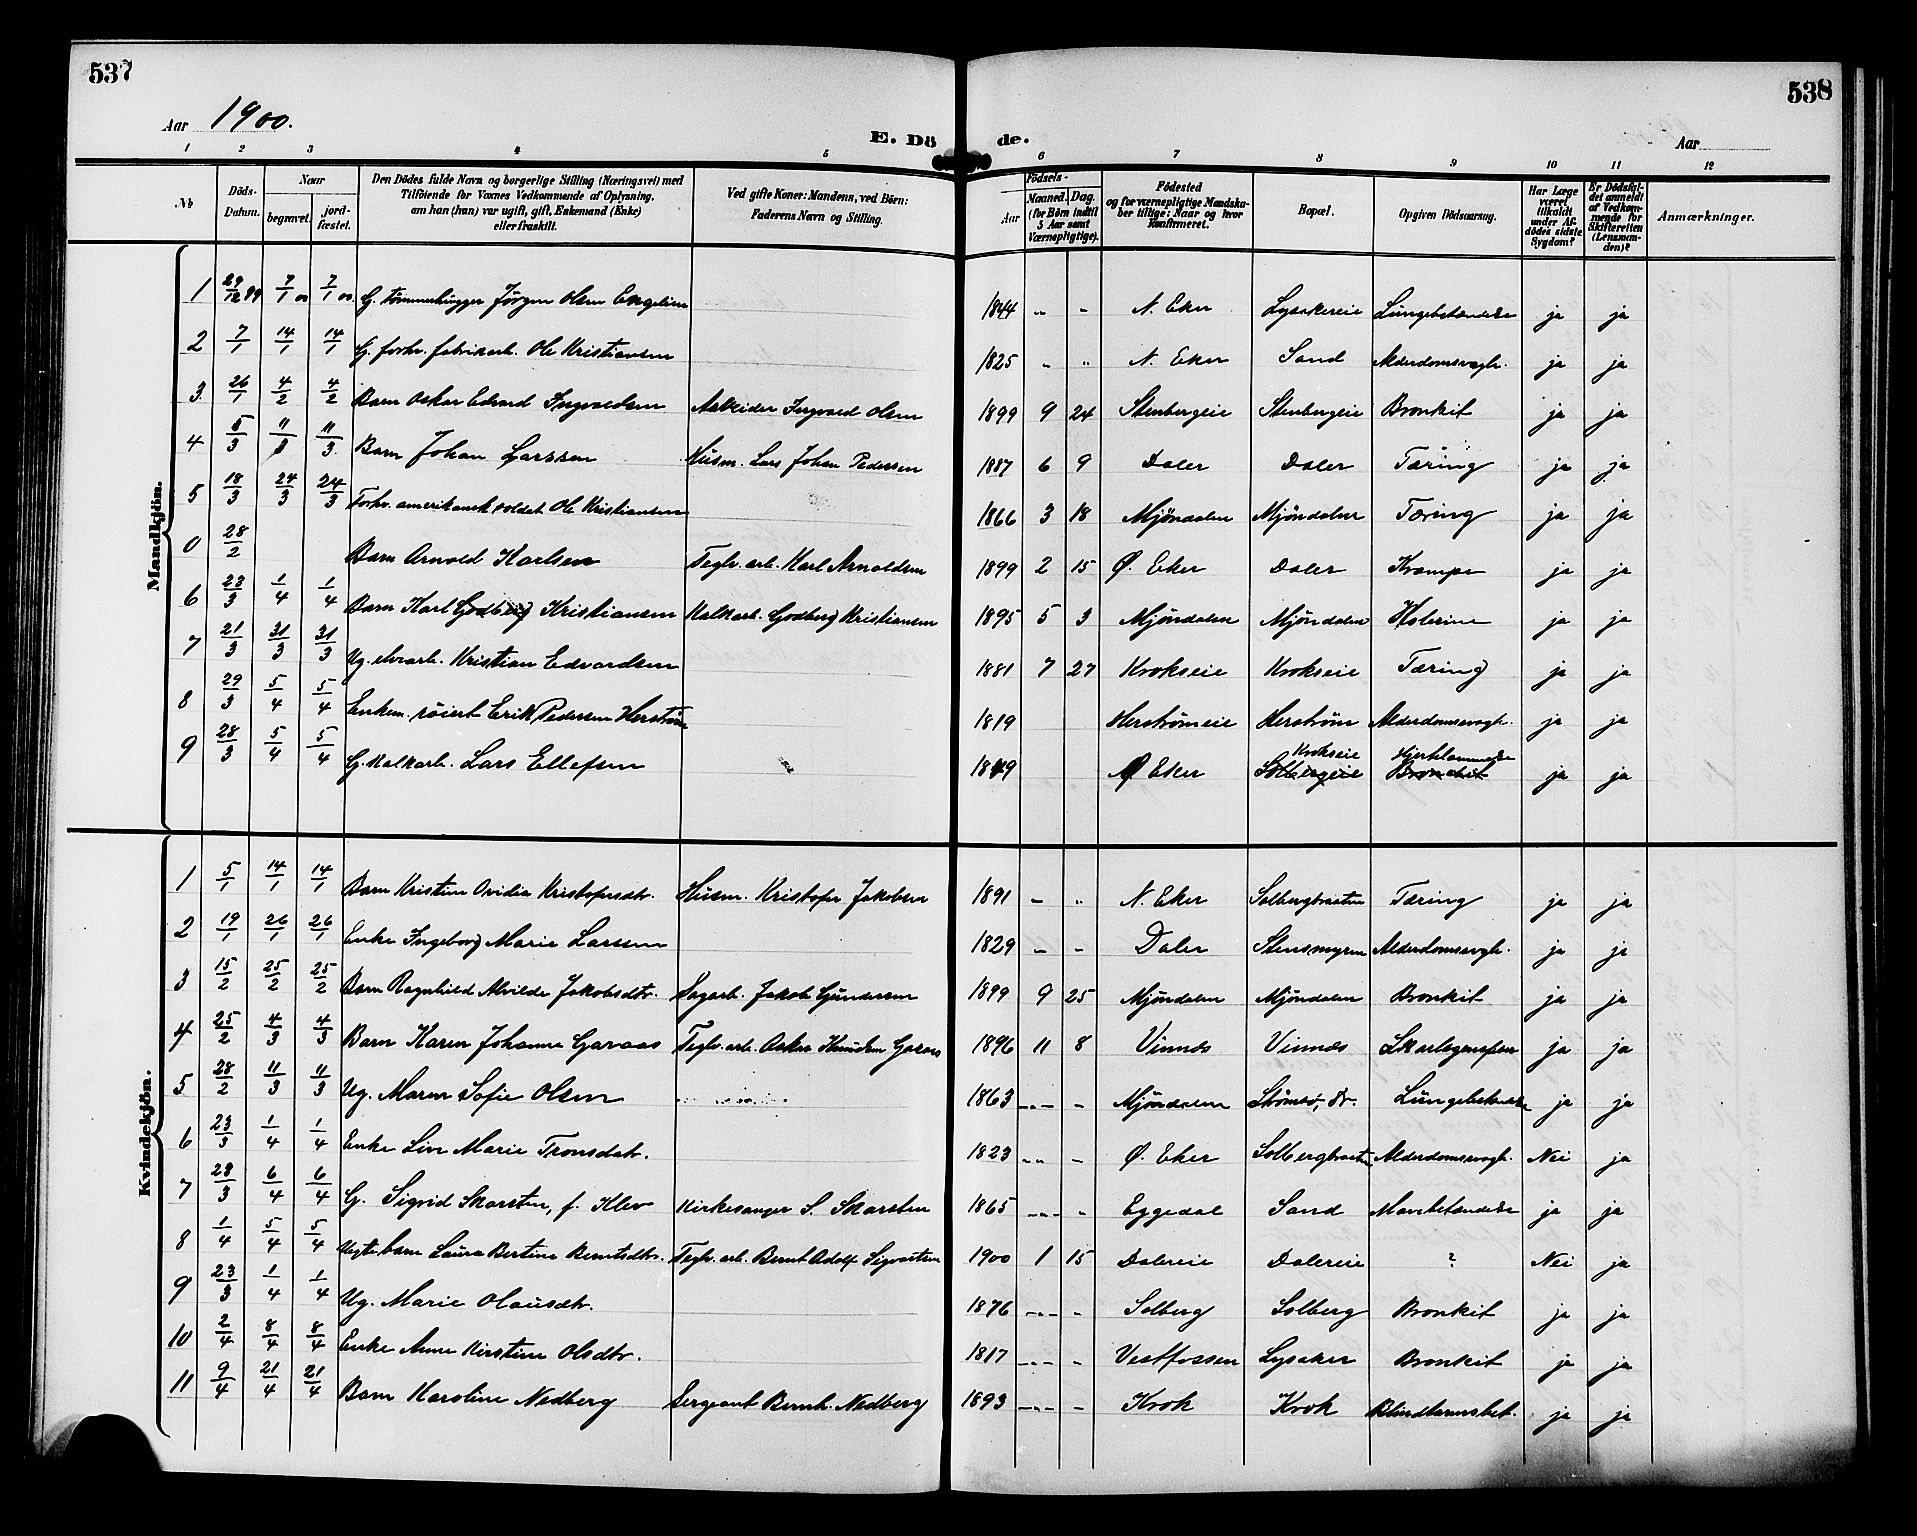 537
538
Aar 1900.
E. Döde.
Aar
1 2 3 4 5 6 7 8 9 10 11 12
No
Döds-Datum.
Naar
begravet.
jordfæstet.
Den Dödes fulde Navn og borgerlige Stilling (Næringsvei) med
Tilföiende for Voxnes Vedkommende af Oplysning,
om han (hun) var ugift, gift, Enkemand (Enke)
eller fraskilt.
Ved gifte Koner: Mandens, ved Börn:
Faderens Navn og Stilling.
Födsels-
Aar
Maaned. Dag.
(for Börn indtil
5 Aar samt
Værnepligtige).
Födested
og for værnepligtige Mandskaber tillige: Naar og hvor
Konfirmeret.
Bopæl.
Opgiven Dödsaarsag.
Har Læge
været
tilkaldt
under Afdödes sidste
Sygdom?
Er Dödsfaldet anmeldt
af Vedkommende for
Skifteretten
(Lensmanden)?
Anmærkninger.
Mandkjön.
1 29/12 99 7/1 00 7/1 00. G. tømmerhugger Jørgen Olsen Engelien 1844 „ „ N. Eker Lysakereie Lungebetændelse ja ja
2 7/1 14/1 14/1 G. forhv. fabrikarb. Ole Kristiansen 1825 „ „ N. Eker Sand Alderdomssvagh. ja ja
3 26/1 4/2 4/2 Barn Oskar Edvard Ingvaldsen Arbeider Ingvald Olsen 1899 9 24 Stenbergeie Stenbergeie Bronkit ja ja
4 5/3 11/3 11/3 Barn Johan Larssen Husm. Lars Johan Pedersen 1887 6 9 Daler Daler Tæring ja ja
5 18/3 24/3 24/3 Forhv. amerikansk soldat Ole Kristiansen 1866 3 18 Mjöndalen Mjöndalen Tæring ja ja
0 28/2 Barn Arnold Karlsen Teglv. arb. Karl Arnoldsen 1899 2 15 Ø. Eker Daler Krampe ja ja
6 23/3 1/4 1/4 Barn Karl Godberg Kristiansen Kalkarb. Godberg Kristiansen 1895 5 3 Mjöndalen Mjöndalen Kolerine ja ja
7 21/3 31/3 31/3 Ug. elvearb. Kristian Edvardsen 1881 7 27 Krokseie Krokseie Tæring ja ja
8 29/3 5/4 5/4 Enkem. røiert Erik Pedersen Herstrøm 1819 Herstrømeie Herstrøm Alderdomssvagh. ja ja
9 28/3 5/4 5/4 G. Kalkarb. Lars Ellefsen 1849 Ø Eker Krokseie Solbergeie Hjertelammelse Bronchit ja ja
Kvindekjön.
1 5/1 14/1 14/1 Barn Kristine Ovidia Kristofersdtr. Husm. Kristofer Jakobsen 1891 – „ N. Eker Solbergbraaten Tæring ja ja
2 19/1 26/1 26/1 Enke Ingeborg Marie Larssen 1829 – – Daler Stensmyren Alderdomssvagh. ja ja
3 15/2 25/2 25/2 Barn Ragnhild Alvilde Jakobsdtr. Sagarb. Jakob Gundersen 1899 9 25 Mjöndalen Mjöndalen Bronkit ja ja
4 25/2 4/3 4/3 Barn Karen Johanne Garaas Teglv. arb. Asker Knudsen Garaas 1896 11 8 Vinnæs Vinnæs Skarlagensfeber ja ja
5 28/2 11/3 11/3 Ug. Maren Sofie Olsen 1863 – „ – – Mjöndalen Strömsö, Dr. Lungebetændelse ja ja
6 23/3 1/4 1/4 Enke Live Marie Tronsdatr. 1823 – „ – – Ø. Eker Solbergbraaten Alderdomssvagh. Nei ja
7 28/3 6/4 6/4 G. Sigrid Skarsten, f. Klev Kirkesanger S. Skarsten 1865 – „ – „ Eggedal Sand Mavebetændelse ja ja
8 1/4 5/4 5/4 Uegte barn Laura Bertine Berntsdtr. Teglv. arb. Bernt Adolf Sigvartsen 1900 1 15 Dalereie Dalereie ? Nei ja
9 23/3 1/4 1/4 Ug. Marie Olausdtr. 1876 – „ – – Solberg Solberg Bronkit ja ja
10 2/4 8/4 8/4 Enke Anne Kirstine Olsdtr. 1817 – „ – „ Vestfossen Lysaker Bronkit ja ja
11 9/4 21/4 21/4 Barn Karoline Nedberg Sergeant Bernh. Nedberg 1893 – „ – – Krok Krok Blindtarmsbet. ja ja